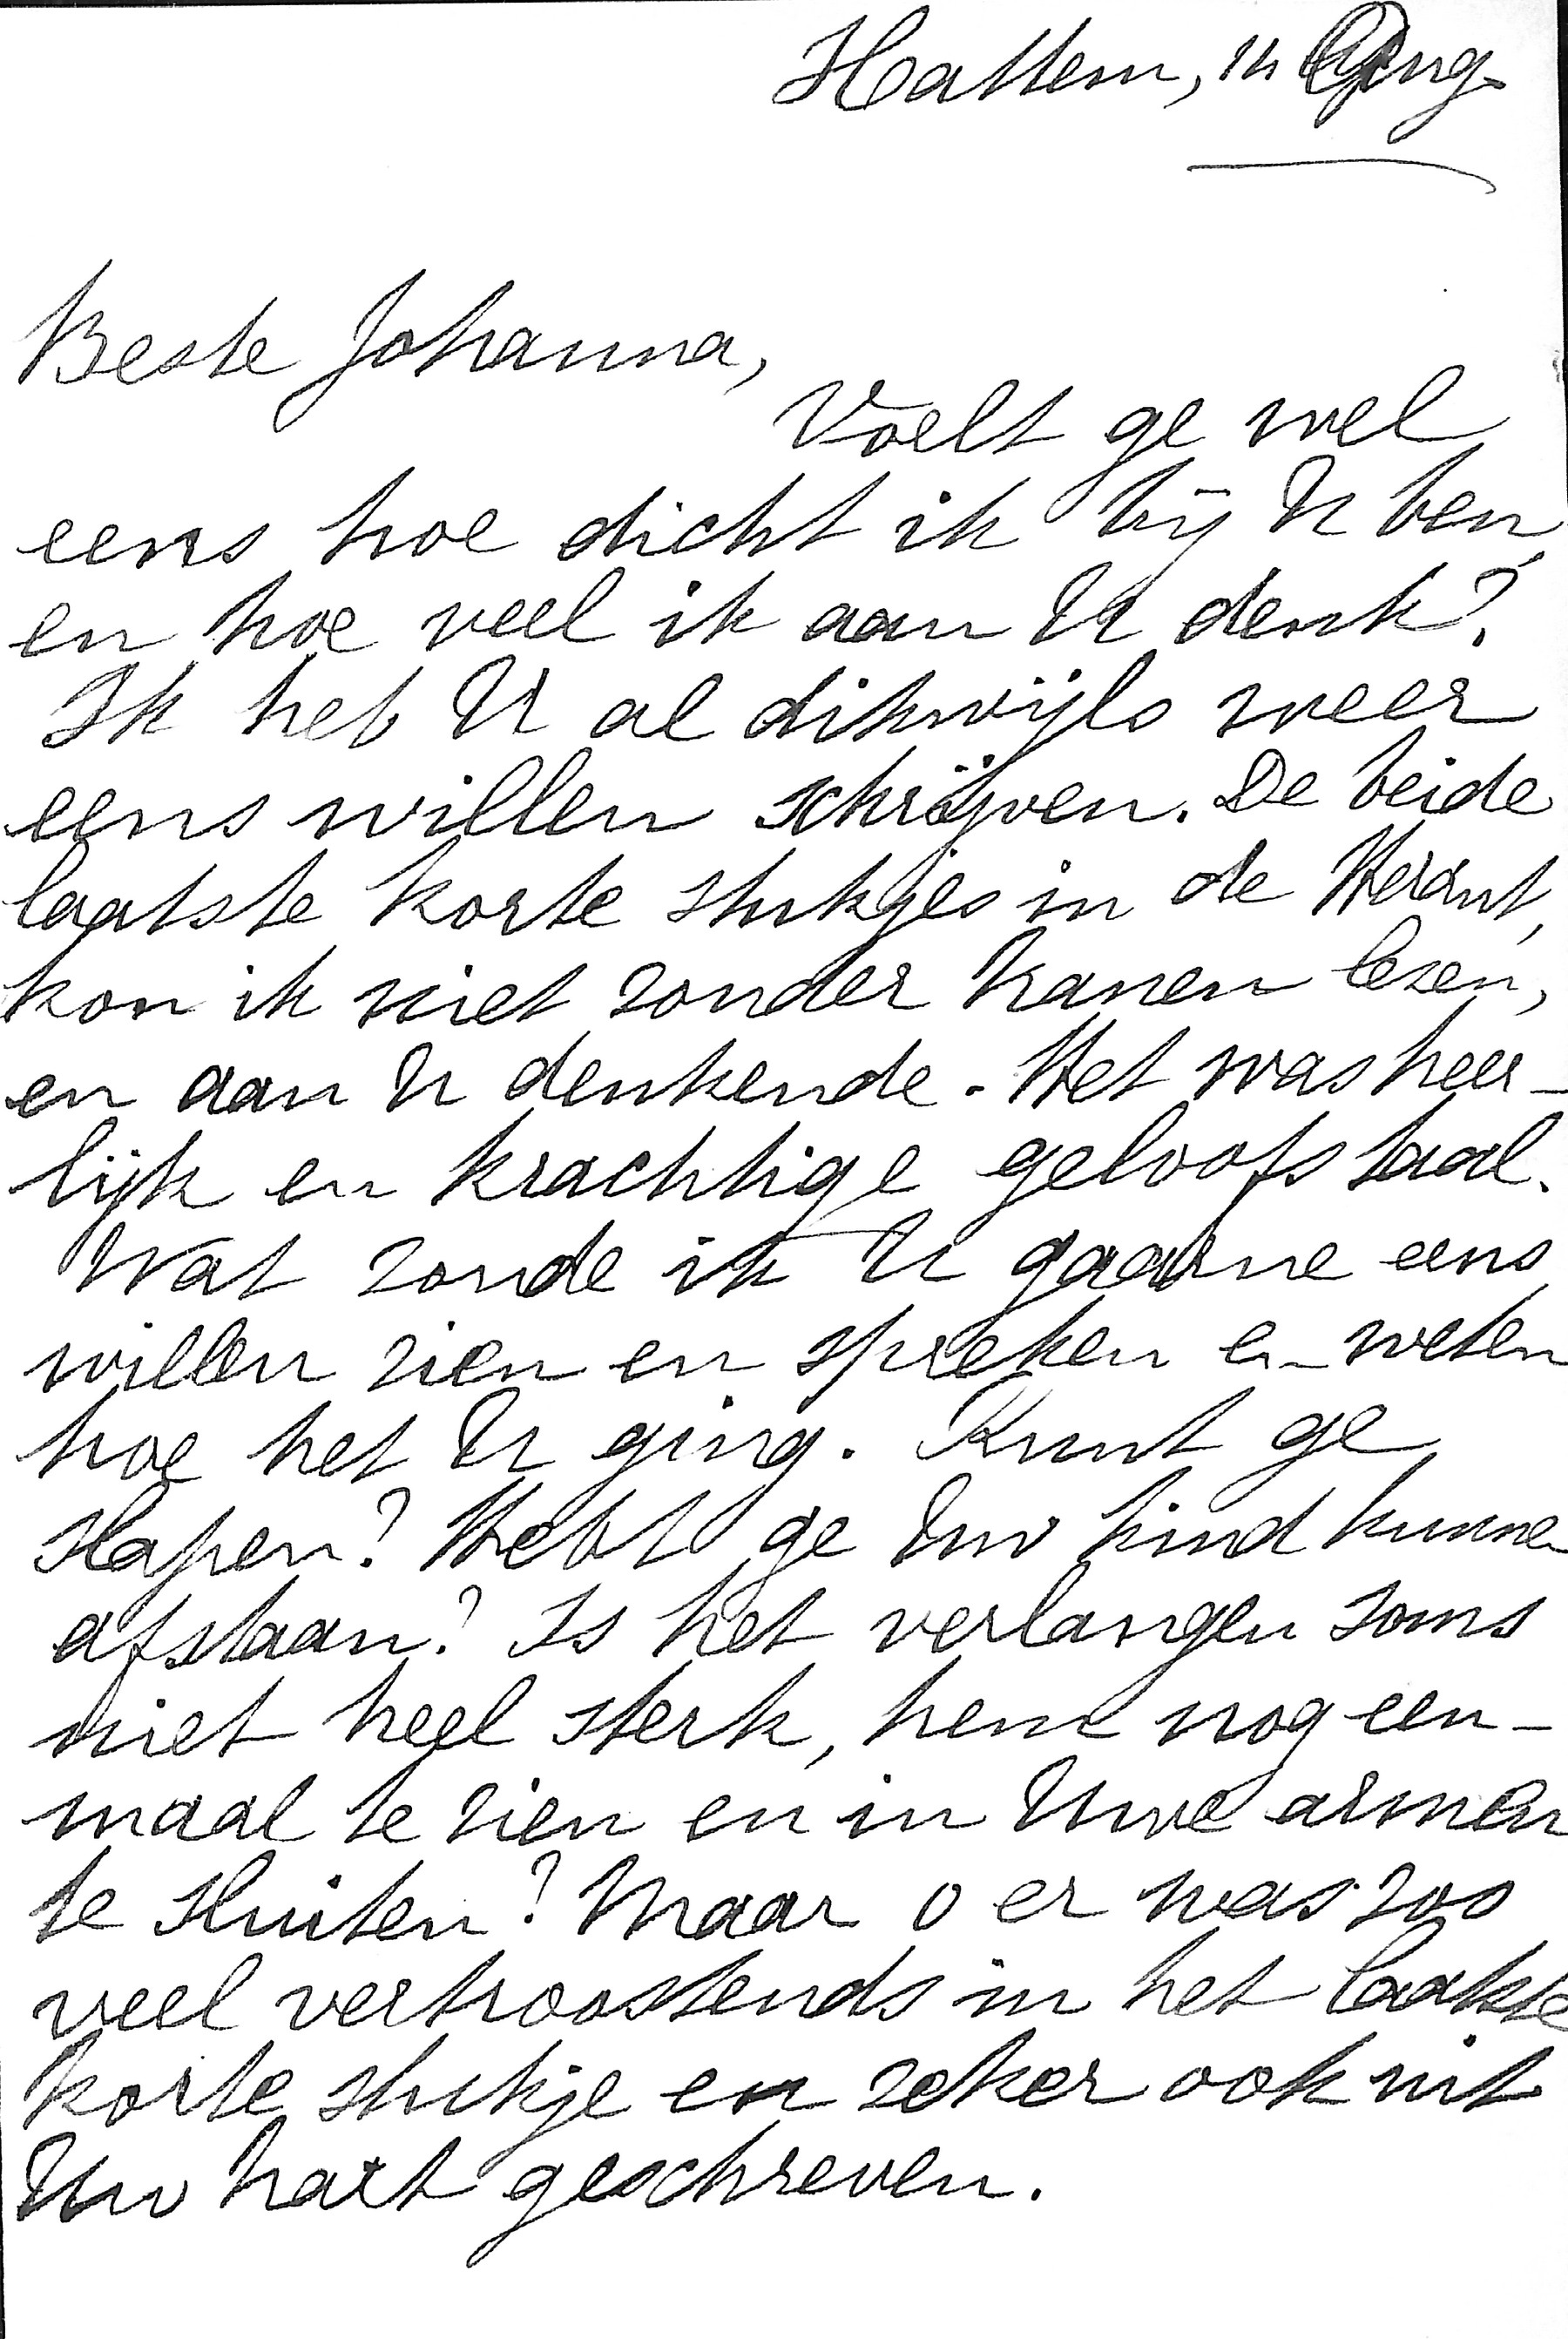 Hattem, 14 Aug.
Beste Johanna,
Voelt ge wel
eens hoe dicht ik bij U ben,
en hoe veel ik aan U denk?
Ik heb U al dikwijls weer
eens willen schrijven. De beide
laatste korte stukjes in de Heraut,
kon ik niet zonder tranen lezen,
en aan U denkende. Het was heer-
lijk en krachtige geloofstaal.
Wat zoude ik U gaarne eens
willen zien en spreken en weten
hoe het U ging. Kunt ge
slapen? Hebt ge Uw kind kunnen
afstaan? Is het verlangen soms
niet heel sterk, hem nog een-
maal te zien en in Uwe armen
te sluiten? Maar o er was zoo
veel vertroostends in het laatste
korte stukje en zeker ook uit
Uw hart geschreven.